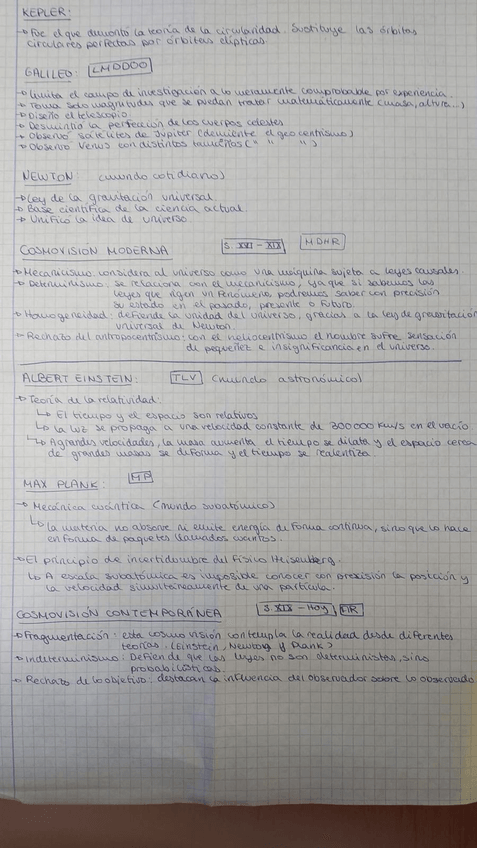 KEPLER:
→ Fue el que desmontó la teoría de la circularidad. Sustituye las órbitas
circulares perfectas por órbitas elípticas.
GALILEO LMDDOO
→ Limita el campo de investigación a lo meramente comprobable por experiencia.
→ Toma solo magnitudes que se puedan tratar matemáticamente (masa, altura...)
→ Diseñó el telescopio
→ Desmintió la perfección de los cuerpos celestes
→ Observó satélites de Júpiter (desmiente el geocentrismo)
→ Observó Venus con distintos tamaños (" " " )
NEWTON (mundo cotidiano)
→ Ley de la gravitación universal.
→ Base científica de la ciencia actual.
→ Unificó la idea de universo.
COSMOVISION MODERNA S. XVI - XIX MDHR
→ Mecanicismo: considera al universo como una máquina sujeta a leyes causales.
→ Determinismo: se relaciona con el mecanicismo, ya que si sabemos las
leyes que rigen un fenómeno, podremos saber con precisión
su estado en el pasado, presente o futuro.
→ Homogeneidad: defiende la unidad del universo, gracias a la ley de gravitación
universal de Newton.
→ Rechazo del antropocentrismo: con el heliocentrismo el hombre sufre sensación
de pequeñez e insignificancia en el universo.
ALBERT EINSTEIN: TLV (mundo astronómico)
→ Teoría de la relatividad:
↳ El tiempo y el espacio son relativos
↳ La luz se propaga a una velocidad constante de 300000 Km/s en el vacío.
↳ A grandes velocidades, la masa aumenta el tiempo se dilata y el espacio cerca
de grandes masas se deforma y el tiempo se realentiza.
MAX PLANK: MP
→ Mecánica cuántica (mundo subatómico)
↳ La materia no absorve ni emite energía de forma continua, sino que lo hace
en forma de paquetes llamados cuantos.
→ El principio de incertidumbre del físico Heisenberg.
↳ A escala subatómica es imposible conocer con presisión la posición y
la velocidad simultáneamente de una partícula.
COSMOVISIÓN CONTEMPORÁNEA S. XIX - Hoy FIR
→ Fragmentación: esta cosmovisión contempla la realidad desde diferentes
teorías. (Einstein, Newton y Plank)
→ Indeterminismo: Defiende que las leyes no son deterministas, sino
probabilísticas.
→ Rechazo de lo objetivo: destacan la influencia del observador sobre lo observado